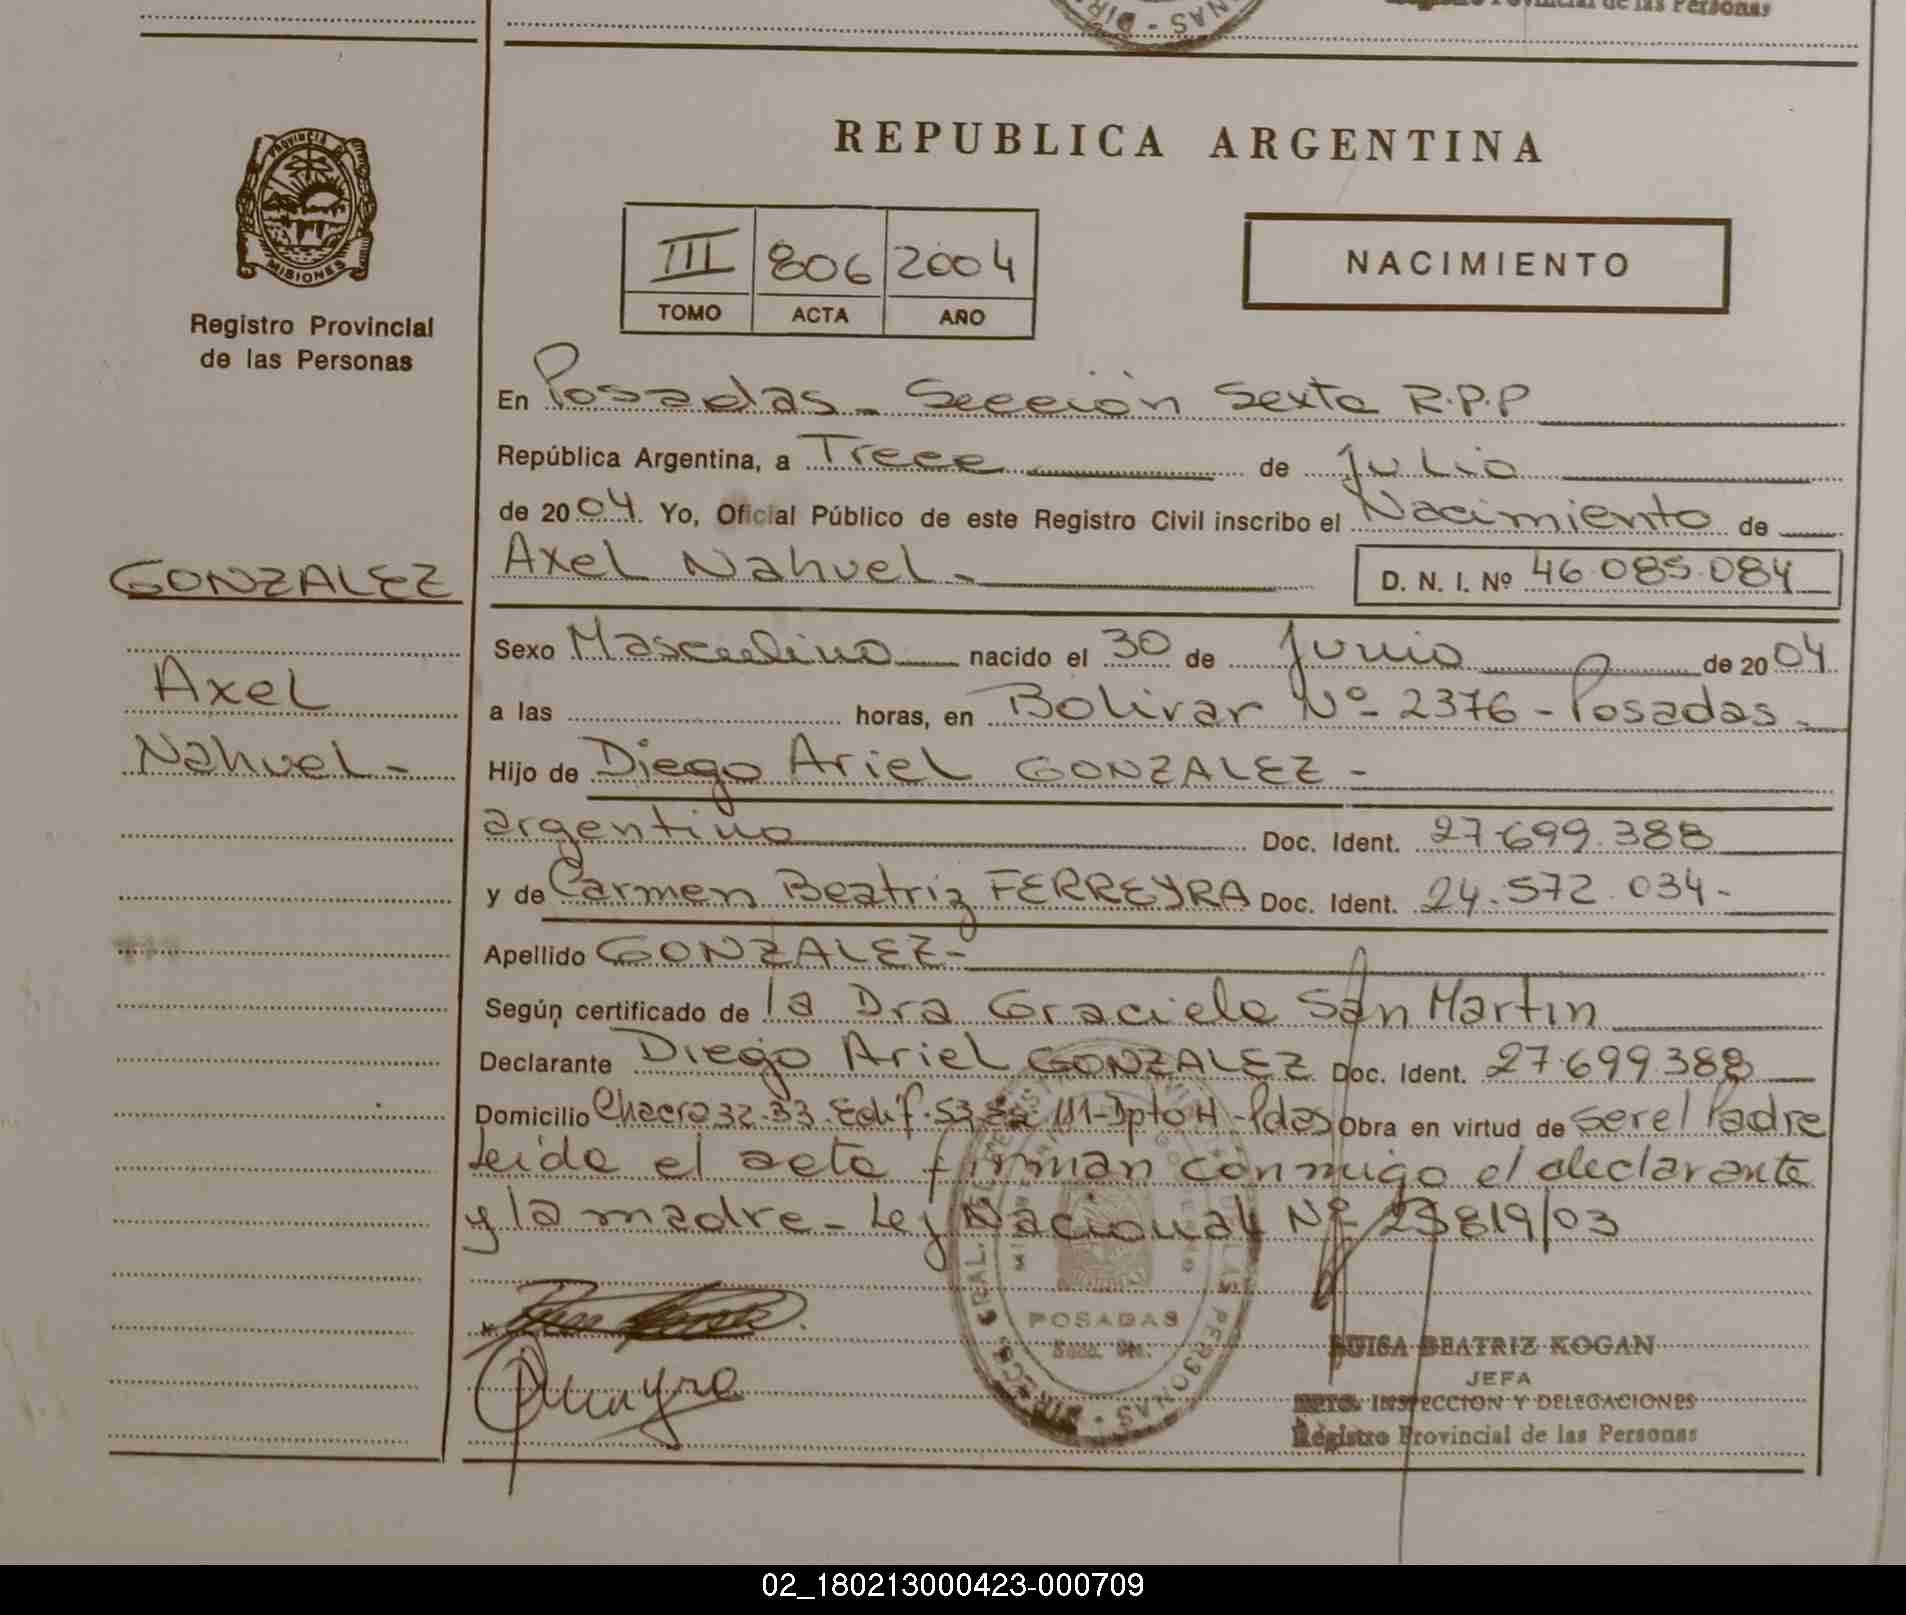 Registro Provincial de las Personas
REPUBLICA ARGENTINA
PROVINCIA D
MISIONES
Registro Provincial
de las Personas
III 806 2004
TOMO ACTA AÑO
NACIMIENTO
En Posadas - Sección Sexta R.P.P
República Argentina, a Trece de Julio
de 2004. Yo, Oficial Público de este Registro Civil inscribo el Nacimiento de
GONZALEZ
Axel
Nahuel -
Axel Nahuel - D. N. I. Nº 46.085.084
Sexo Masculino nacido el 30 de Junio de 2004
a las horas, en Bolivar Nº 2376 - Posadas -
Hijo de Diego Ariel GONZALEZ -
argentino Doc. Ident. 27.699.388
y de Carmen Beatriz FERREYRA Doc. Ident. 24.572.034-
Apellido GONZALEZ-
Según certificado de la Dra Graciela San Martin
Declarante Diego Ariel GONZALEZ Doc. Ident. 27.699.388
Domicilio Chacra 32-33-Edif.53 Dpto H - Pdas Obra en virtud de ser el Padre
Leida el acta firman conmigo el declarante
y la madre - Ley Nacional Nº 25819/03
POSADAS
LUISA BEATRIZ KOGAN
JEFA
DPTO. INSPECCION Y DELEGACIONES
Registro Provincial de las Personas
02_180213000423-000709